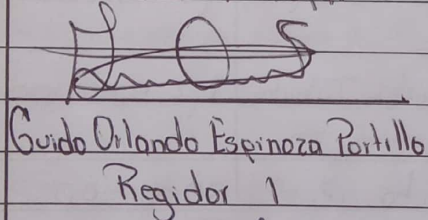 Guido Orlando Espinoza Portillo
Regidor 1